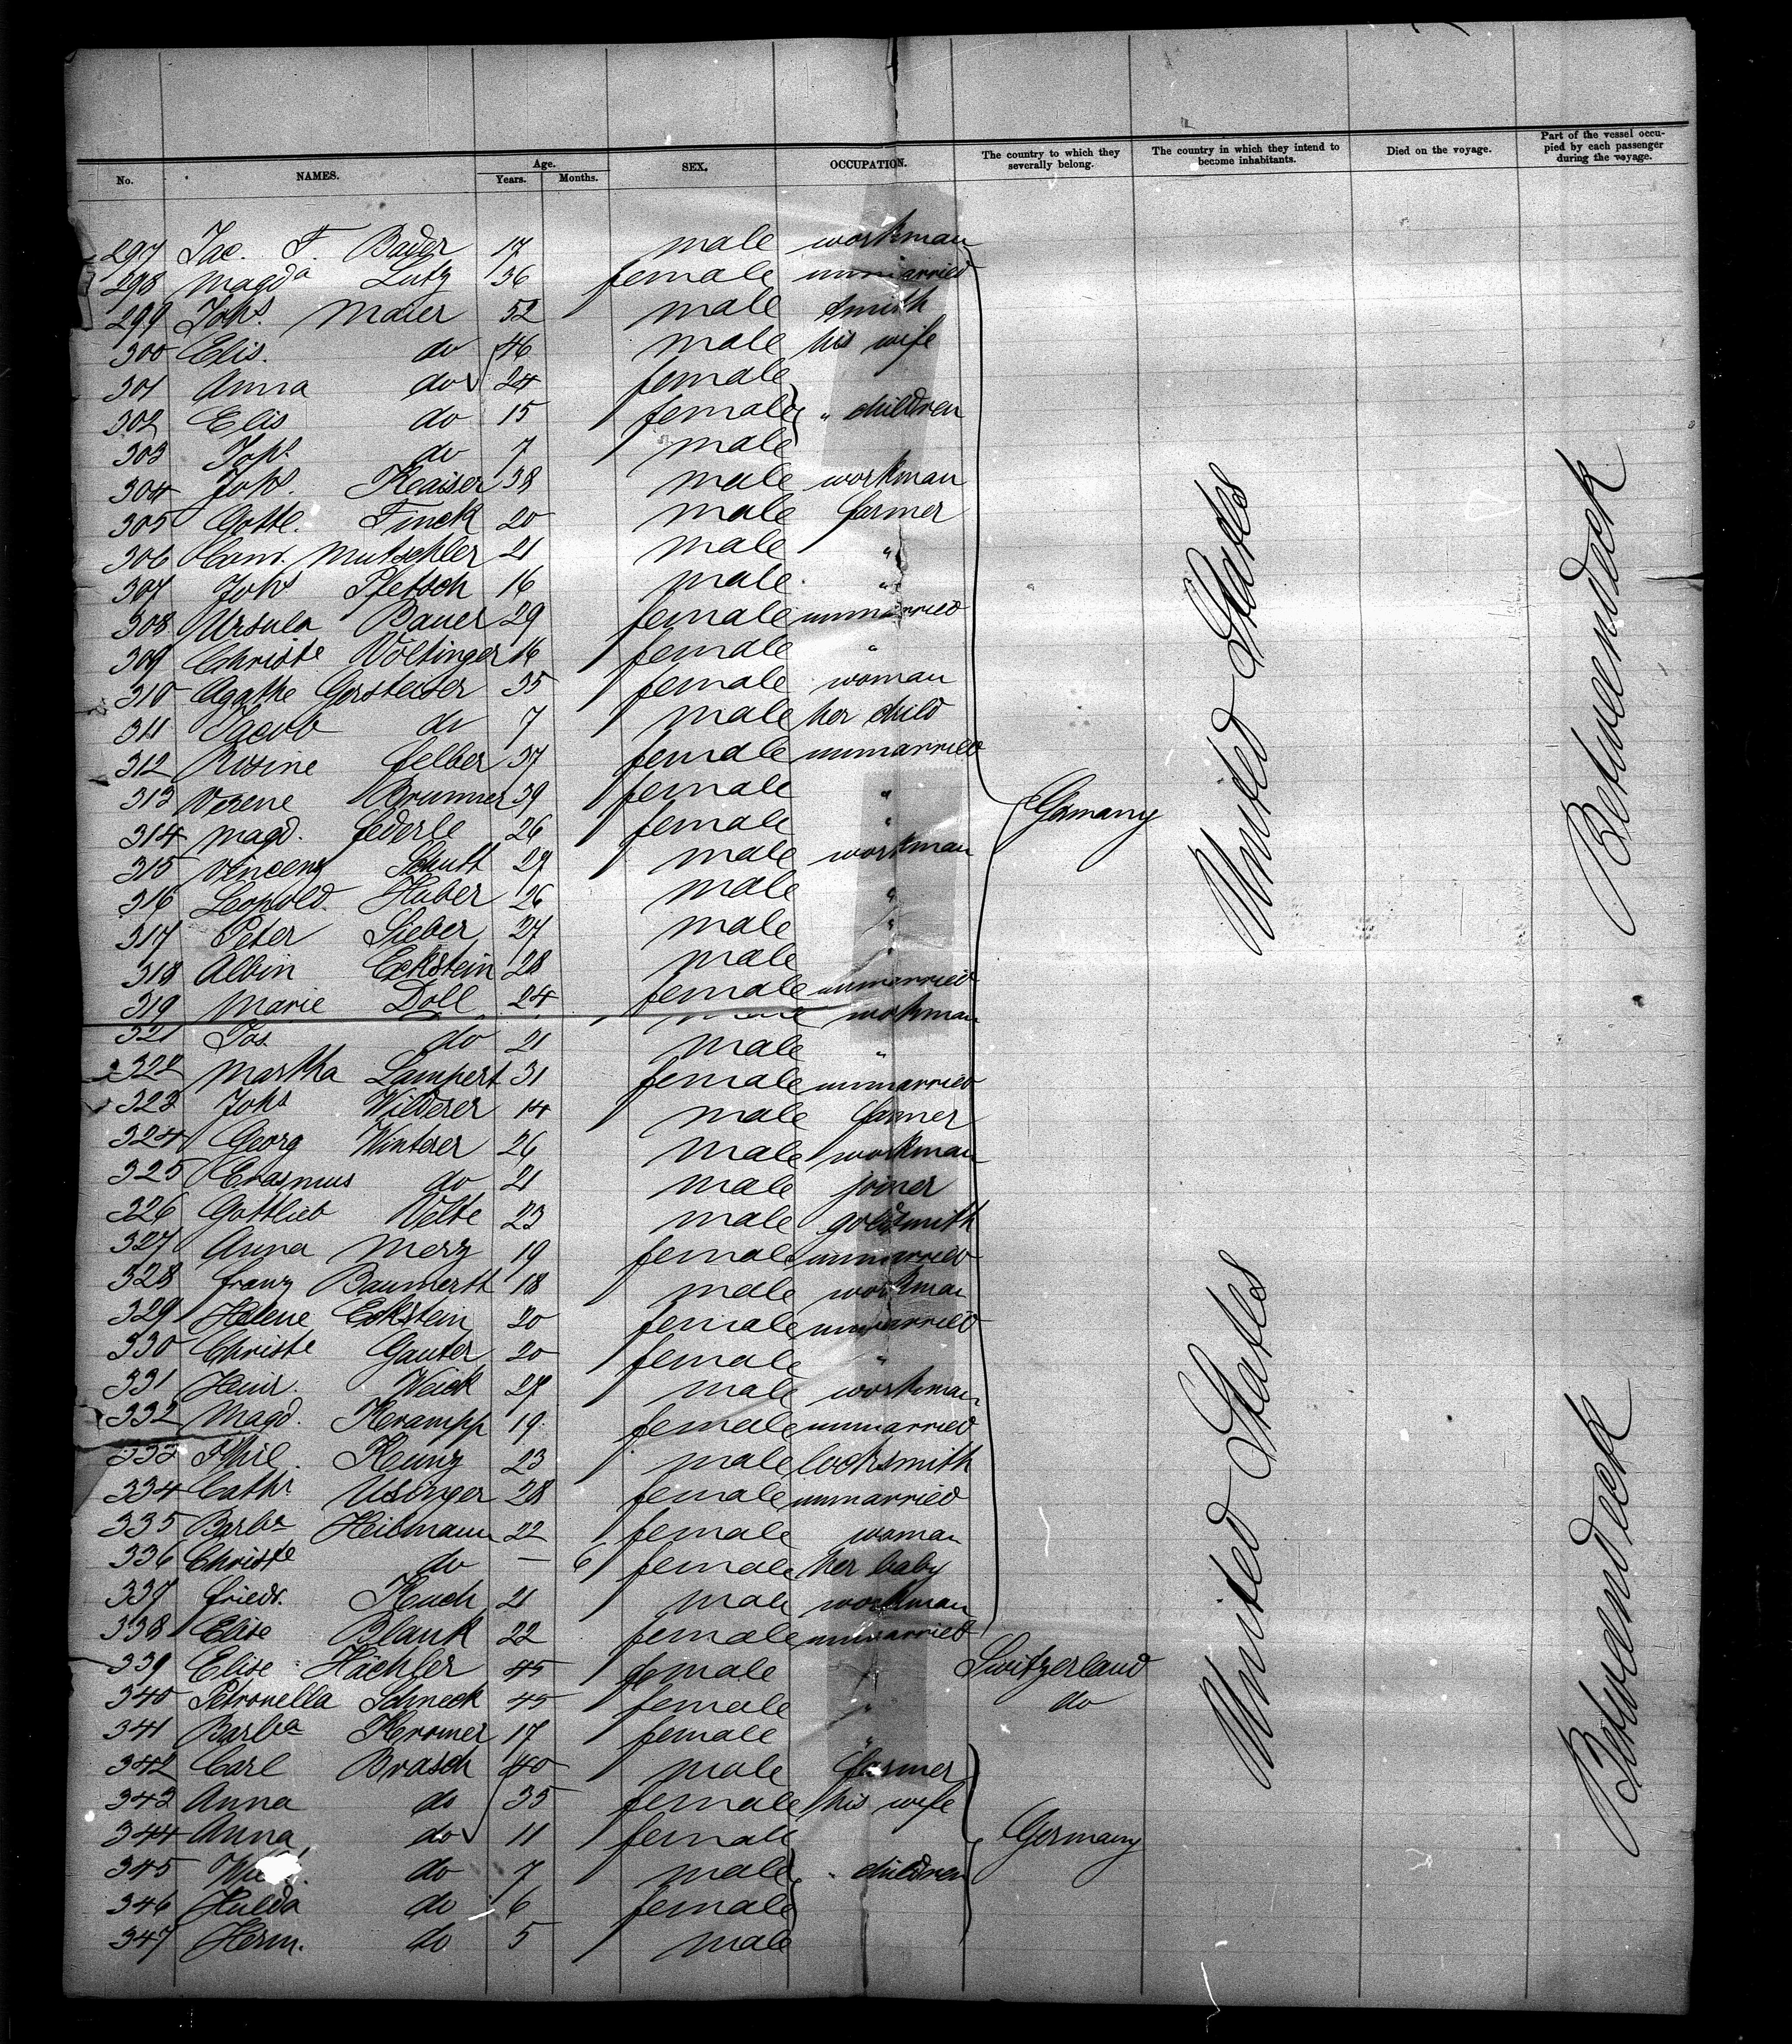 No. NAMES. Age. Years. Months. SEX. OCCUPATION. The country to which they severally belong. The country in which they intend to become inhabitants. Died on the voyage. Part of the vessel occupied by each passenger during the voyage.
297 Jac. F. Bader 17 male workman
298 Magda Lutz 36 female unmarried
299 Johs. Maier 52 male smith
300 Elis. do 46 male his wife
301 Anna do 24 female
302 Elis do 15 female " children
303 Johs. do 7 male
304 Johs. Kaiser 38 male workman
305 Gottl. Finck 20 male farmer
306 Conr. Mutschler 21 male "
307 Johs Pfetsch 16 male "
308 Ursula Bauer 29 female unmarried
309 Christe Völtinger 16 female "
310 Agathe Gersteiser 35 female woman
311 Jacob do 7 male her child
312 Rosine Felber 37 female unmarried
313 Verene Brunner 39 female "
314 Magd. Federle 26 female "
315 Vincenz Schutt 29 male workman
316 Leopold Huber 26 male "
317 Peter Sieber 27 male "
318 Albin Eckstein 28 male "
319 Marie Doll 24 female unmarried
workman
321 Jos do 21 male "
322 Martha Lampert 31 female unmarried
323 Johs Wilderer 14 male farmer
324 Georg Winterer 26 male workman
325 Erasmus do 21 male joiner
326 Gottlieb Velte 23 male goldsmith
327 Anna Merz 19 female unmarried
328 Franz Baumerth 18 male workman
329 Helene Eckstein 20 female unmarried
330 Christe Gauter 20 female "
331 Heinr. Weick 28 male workman
332 Magd. Krampp 19 female unmarried
333 Phil. Kunz 23 male locksmith
334 Cathr Usinger 28 female unmarried
335 Barba Heilmann 22 female woman
336 Christe do — 6 female her baby
337 Friedr. Kuch 21 male workman
338 Elise Blank 22 female unmarried
339 Elise Hächler 45 female " Switzerland
340 Petronella Schneck 45 female " do
341 Barba Kromer 17 female "
342 Carl Brasch 40 male farmer
343 Anna do 35 female his wife
344 Anna do 11 female Germany
345 do 7 male " children
346 Hulda do 6 female
347 Herm. do 5 male
Germany
United States
Betweendeck
United States
Betweendeck